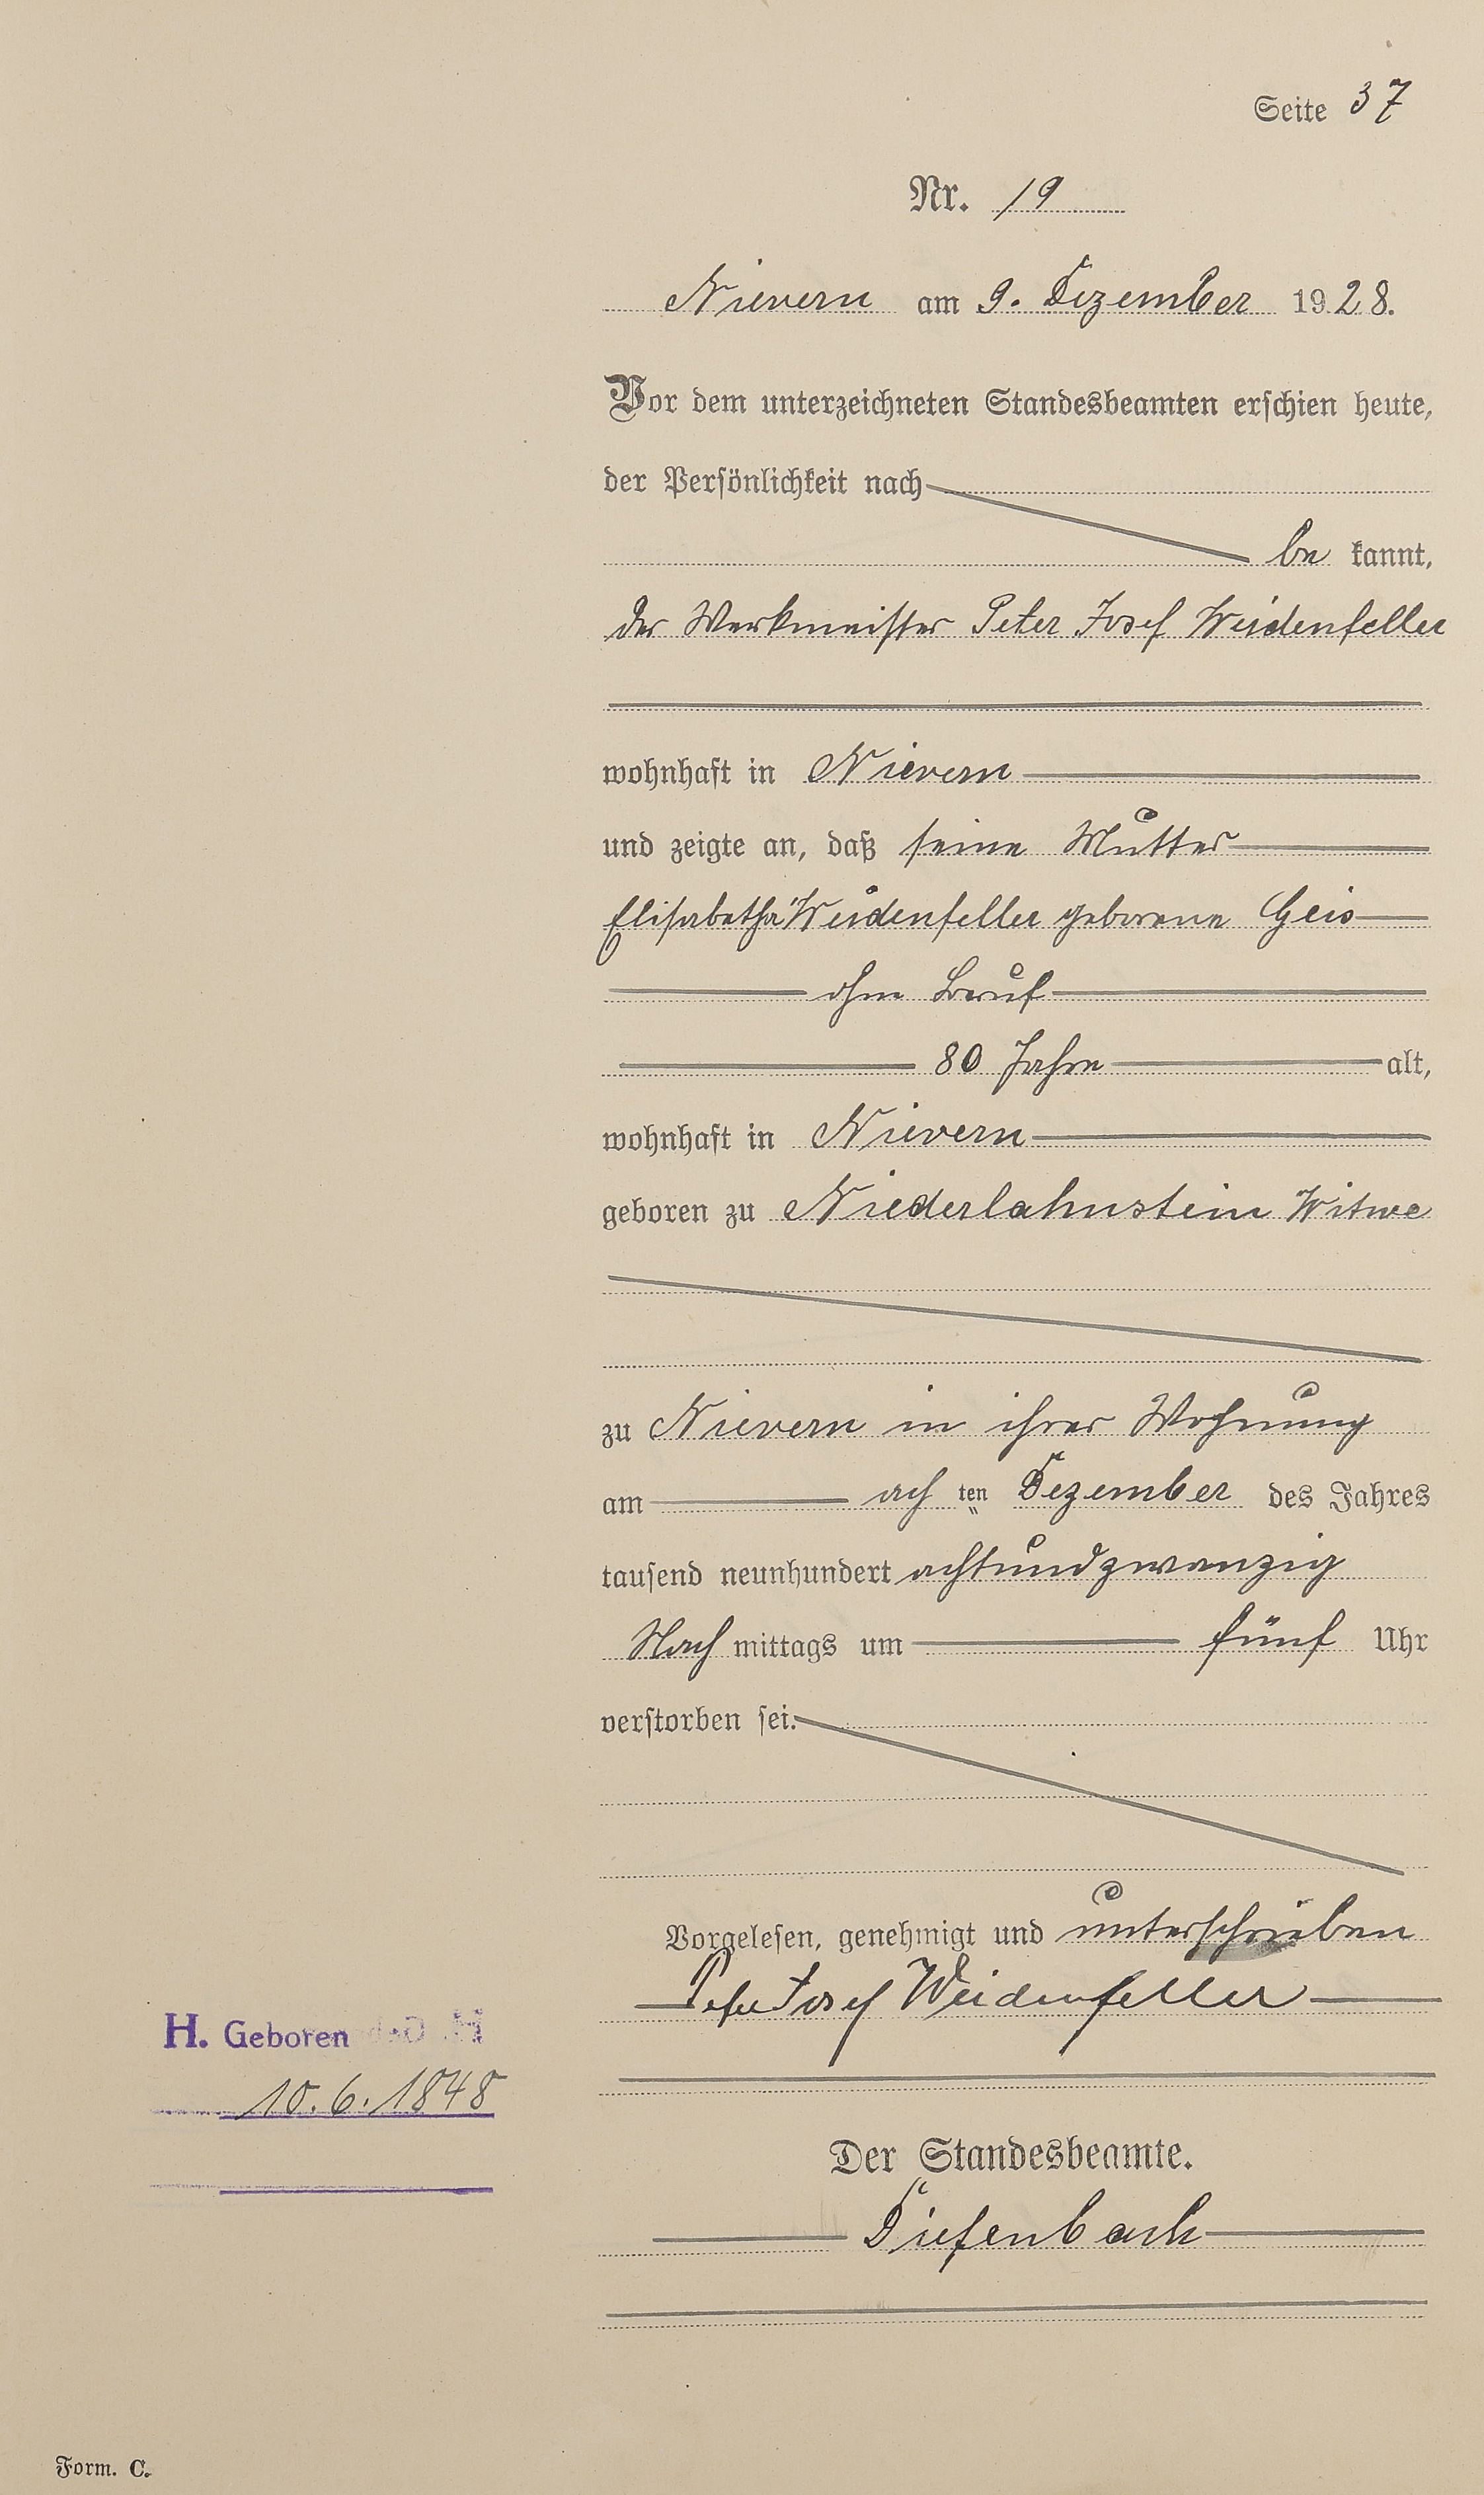 Seite 37
Nr. 19
Nievern am 9. Dezember 1928.
Vor dem unterzeichneten Standesbeamten erschien heute,
der Persönlichkeit nach
be kannt,
der Werkmeister Peter Josef Weidenfeller
wohnhaft in Nievern
und zeigte an, daß seine Mutter
Elisabetha Weidenfeller geborene Geis
ohne Beruf
80 Jahre alt,
wohnhaft in Nievern
geboren zu Niederlahnstein Witwe
zu Nievern in ihrer Wohnung
am ach ten Dezember des Jahres
tausend neunhundert achtundzwanzig
Nach mittags um fünf Uhr
verstorben sei.
Vorgelesen, genehmigt und unterschrieben
Peter Josef Weidenfeller
H. Geboren
10.6.1848
Der Standesbeamte.
Diefenbach
Form. C.